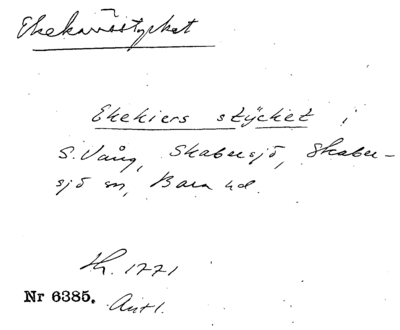 Ekekärrstycket
Ekekiers stÿcket i
S. Vång, Skabersjö, Skaber-
sjö sn, Bara hd.
Lh. 1771
Nr 6385. Avt 1.